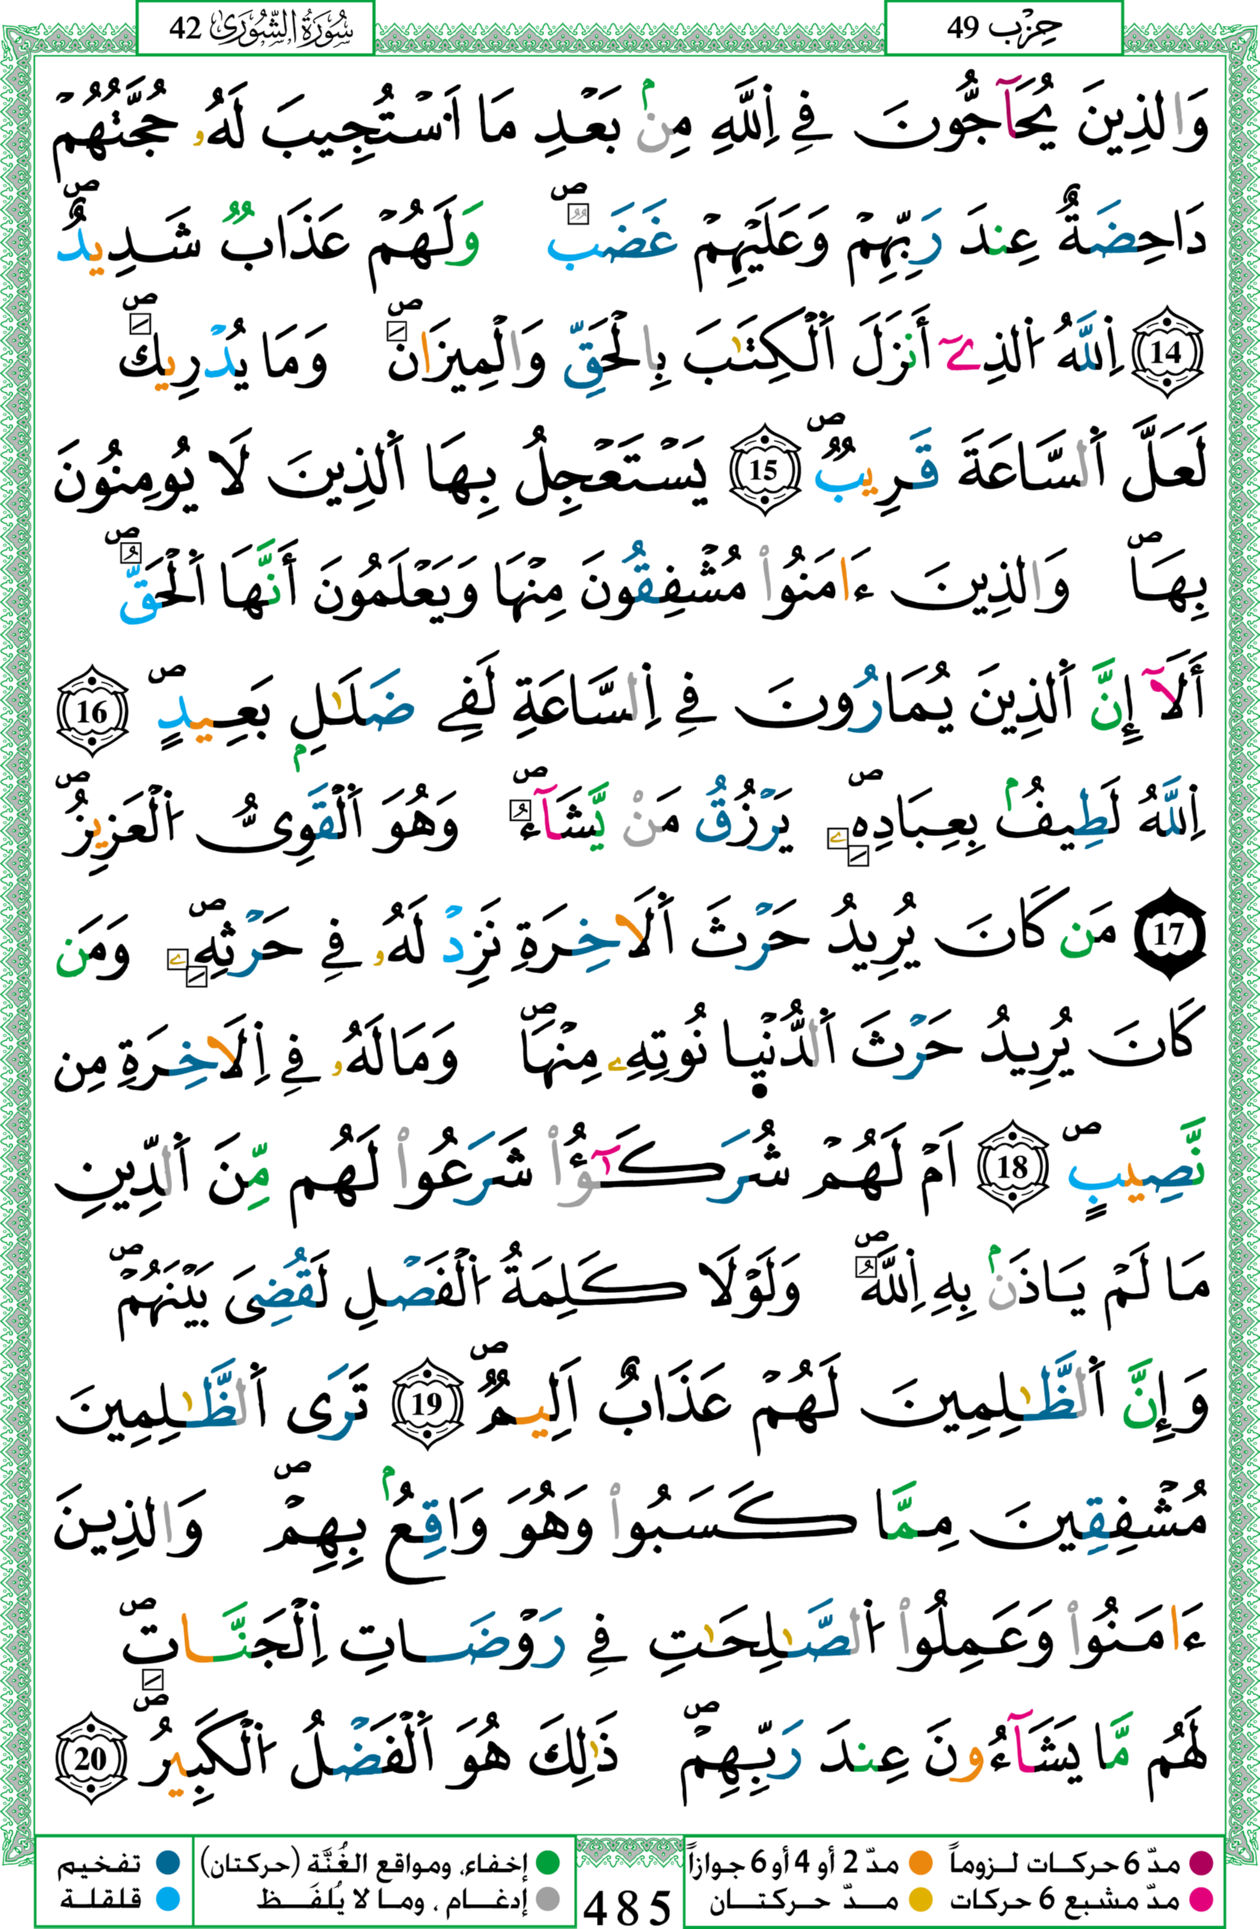 حِزْب 49
سُورَةُ الشُّورَىٰ 42
وَالذِينَ يُحَآجُّونَ فِے اِ۬للَّهِ مِنۢ بَعْدِ مَا اَ۟سْتُجِيبَ لَهُۥ حُجَّتُهُمْ
دَاحِضَةٌ عِندَ رَبِّهِمْ وَعَلَيْهِمْ غَضَبٞۖ وَلَهُمْ عَذَابٞ شَدِيدٌۖ
14 اِ۬للَّهُ اُ۬لذِےٓ أَنزَلَ اَ۬لْكِتَٰبَ بِالْحَقِّ وَالْمِيزَانَۖ وَمَا يُدْرِيكَۖ
لَعَلَّ اَ۬لسَّاعَةَ قَرِيبٞۖ 15 يَسْتَعْجِلُ بِهَا اَ۬لذِينَ لَا يُومِنُونَ
بِهَاۖ وَالذِينَ ءَامَنُواْ مُشْفِقُونَ مِنْهَا وَيَعْلَمُونَ أَنَّهَا اَ۬لْحَقُّۖ
أَلَآ إِنَّ اَ۬لذِينَ يُمَارُونَ فِے اِ۬لسَّاعَةِ لَفِے ضَلَٰلِۢ بَعِيدٍۖ 16
اِ۬للَّهُ لَطِيفُۢ بِعِبَادِهِۦۖ يَرْزُقُ مَنْ يَّشَآءُۖ وَهُوَ اَ۬لْقَوِىُّ اُ۬لْعَزِيزُۖ
17 مَن كَانَ يُرِيدُ حَرْثَ اَ۬لَاخِرَةِ نَزِدْ لَهُۥ فِے حَرْثِهِۦۖ وَمَن
كَانَ يُرِيدُ حَرْثَ اَ۬لدُّنْيٜا نُوتِهِۦ مِنْهَاۖ وَمَا لَهُۥ فِے اِ۬لَاخِرَةِ مِن
نَّصِيبٍۖ 18 اَمْ لَهُمْ شُرَكَٰٓؤُاْ شَرَعُواْ لَهُم مِّنَ اَ۬لدِّينِ
مَا لَمْ يَاذَنۢ بِهِ اِ۬للَّهُۖ وَلَوْلَا كَلِمَةُ اُ۬لْفَصْلِ لَقُضِىَ بَيْنَهُمْۖ
وَإِنَّ اَ۬لظَّٰلِمِينَ لَهُمْ عَذَابٌ اَلِيمٞۖ 19 تَرَى اَ۬لظَّٰلِمِينَ
مُشْفِقِينَ مِمَّا كَسَبُواْ وَهُوَ وَاقِعُۢ بِهِمْۖ وَالذِينَ
ءَامَنُواْ وَعَمِلُواْ اُ۬لصَّٰلِحَٰتِ فِے رَوْضَاتِ اِ۬لْجَنَّاتِۖ
لَهُم مَّا يَشَآءُونَ عِندَ رَبِّهِمْۖ ذَٰلِكَ هُوَ اَ۬لْفَضْلُ اُ۬لْكَبِيرُۖ 20
مدّ 6 حركات لـزوماً
مدّ 2 أو 4 أو 6 جوازاً
مدّ مشبع 6 حركات
مــدّ حــركتــان
485
إخفاء، ومواقع الغُنَّة (حركتان)
إدغــام ، ومـا لا يُلفَــظ
تفخيم
قلقلة